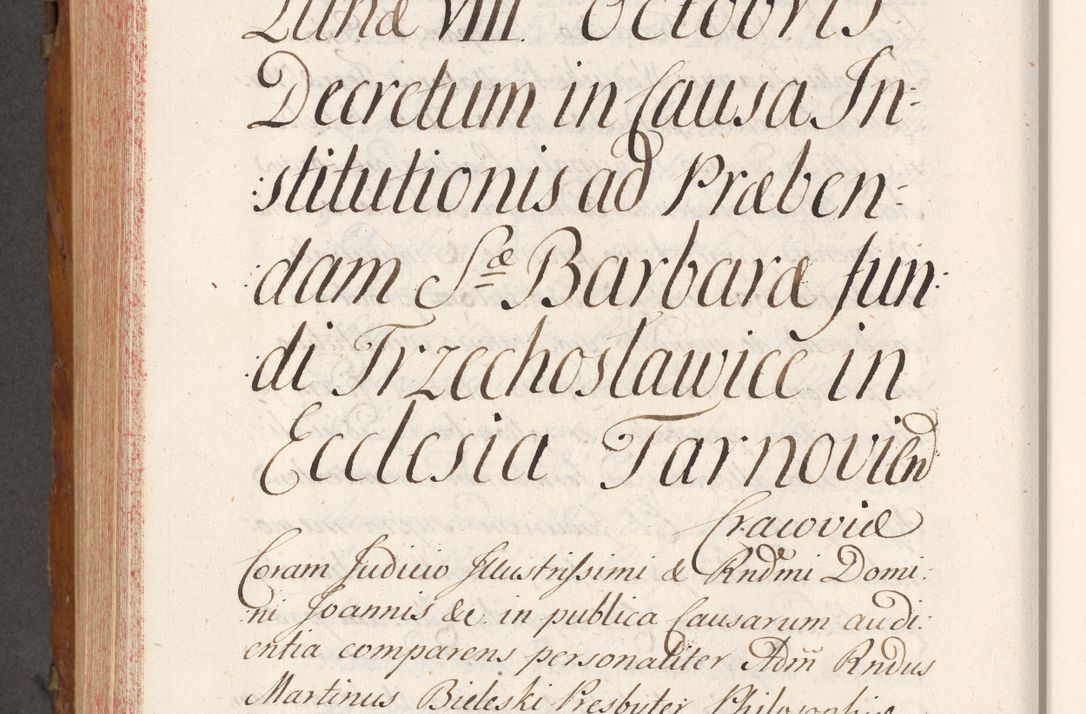 Lunæ VIII Octobris
Decretum in Causa In-
stitutionis ad Præben-
dam Sæ Barbaræ fun-
di Trzechoslawice in
Ecclesia Tarnovien
Cracoviæ
Coram Judicio Illustrissimi & Rndmi Domi-
ni Joannis &c. in publica Causarum audi-
entia comparens personaliter Adm Rndus
Martinus Bieleski Presbyter Philosophiæ